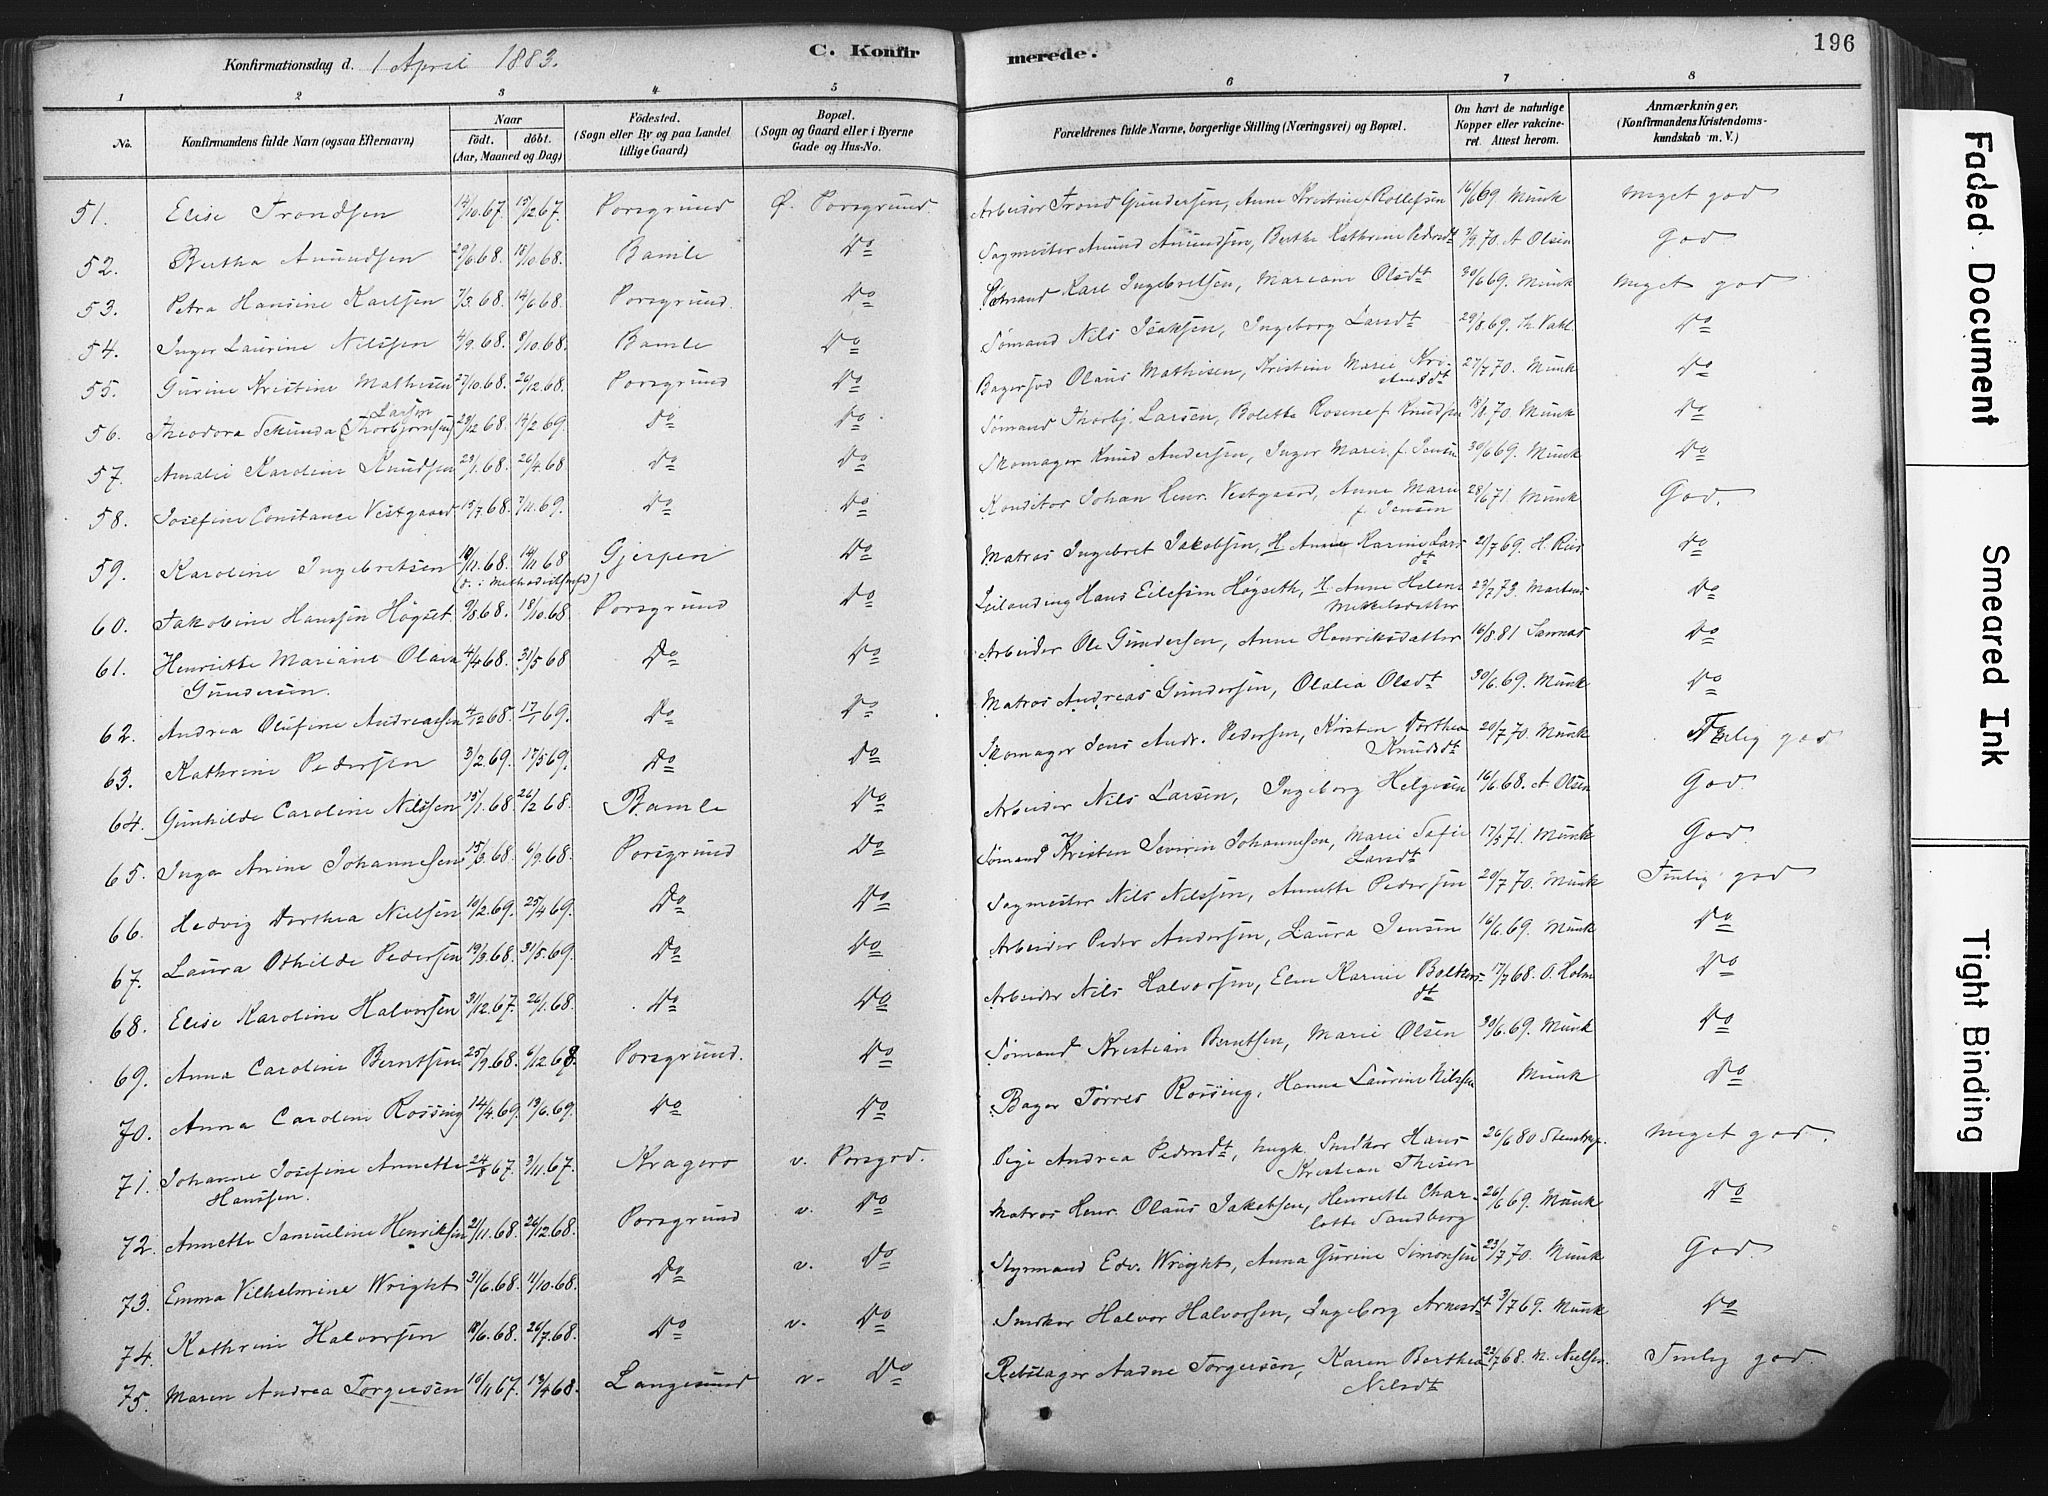 Konfirmationsdag d. 1 April 1883.
C. Konfirmerede.
196
1 2 3 4 5 6 7 8
No. Konfirmandens fulde Navn (ogsaa Efternavn) Naar født. døbt. (Aar, Maaned og Dag) Födested. (Sogn eller By og paa Landet tillige Gaard) Bopæl. (Sogn og Gaard eller i Byerne Gade og Hus-No. Forældrenes fulde Navne, borgerlige Stilling (Næringsvei) og Bopæl. Om havt de naturlige Kopper eller vakcineret. Attest herom. Anmærkninger. (Konfirmandens Kristendomskundskab m. V.)
51. Elise Trondsen 14/10.67. 15/12 67. Porsgrund Ø. Porsgrund. Arbeider Trond Gundersen, Anne Kristine f. Rollefsen 16/6 69 Munk Meget god
52. Bertha Amundsen 29/6.68. 18/10.68. Bamle Do Sagmester Amund Amundsen, Berthe Kathrine Pedersdt 3/9 70. A Olsen God
53. Petra Hansine Karlsen 7/3.68. 14/6 68. Porsgrund. Do Karl Ingebretsen, Mariane Olsdt 30/6 69. Munk Meget god
54. Inger Laurine Nilssen 4/9.68. 9/10.68. Bamle Do Sømand Nils Isaksen, Ingeborg Larsdt 29/8.69. Th. Vahl. Do
55. Gurine Kristine Mathisen 27/10.68. 26/12.68. Porsgrund Do Bagersvd Olaus Mathisen, Kristine Marie Kristensdt 27/7 70. Munk Do
56. Theodora Sekunda Larsen (Thorbjørnsen) 23/12 68. 14/2 69. Do Do Sømand Thorbj. Larsen, Bolette Rosene f. Knudsen 18/8.70. Munk Do
57. Amalie Karoline Knudsen 23/1.68. 26/4.68 Do Do Skomager Knud Andersen, Inger Marie f. Jensen 30/6 69. Munk Do
58. Josefine Constance Vestgaard 15/7.68. 7/11.69. Do Do Konditor Johan Henr. Vestgaard, Anne Marie f. Jensen 28/6 71. Munk God.
59. Karoline Ingebretsen 10/11.68. 14/11 68 Gjerpen Do Matros Ingebret Jakobsen, H. Anne Karine Larsdt 21/7 69. H. Riis Do
60. Jakobine Hanssen Høgset 9/8.68. 18/10.68 Porsgrund Do Leilænding Hans Eilefsen Høgseth, H. Anne Helene Mikkelsdatter 23/7 73. Martens Do
61. Henriette Mariane Olava Gundersen. 4/4 68. 31/5 68 Do Do Arbeider Ole Gundersen, Anne Henriksdatter 16/8.81 Do
62. Andrea Olufine Andreassen 4/12 68. 17/1 69. Do Do Matros Andreas Gundersen, Olalia Olsdt 30/6.69. Munk Do
63. Kathrine Pedersen 3/2.69. 17/5 69. Do Do Skomager Jens Andr. Pedersen, Kirsten Dorthea Knudsdt 20/7 70. Munk Temlig god
64. Gunhilde Caroline Nilssen 15/1.68. 26/2 68. Bamle Do Arbeider Nils Larsen, Ingeborg Helgesen 16/6.68. A. Olsen God.
65. Inga Anine Johannesen 15/3.68. 6/9.68. Porsgrund Do Sømand Kristen Severin Johannesen, Marie Sofie Larsdt 17/5 71. Munk God.
66. Hedvig Dorthea Nielsen 10/2.69. 25/4 69. Do Do Sagmester Nils Nilssen, Annette Pedersen 20/7 70. Munk Temlig god
67. Laura Othilde Pedersen 19/3.68. 31/5.69. Do Do Arbeider Peder Andersen, Laura Jensen 16/6.69. Munk Do
68. Elise Karoline Halvorsen 31/12.67. 26/1.68. Do Do Arbeider Nils Halvorsen, Elen Karine Boltersdt 17/7 68. O. Holm Do
69. Anna Caroline Berntsen 25/9.68. 6/12.68. Porsgrund. Do Sømand Kristian Berntsen, Marie Olsen 30/6.69. Munk Do
70. Anna Caroline Rossing 14/4.69. 13/6.69. Do Do Bager Tørres Rossing, Hanna Laurine Nilssen Munk Do
71. Johanne Josefine Annette Hanssen. 24/8 67. 3/11.67. Kragerø v. Porsgrd. Pige Andrea Pedersdt, Smdkar Hans Kristian Thisen 26/6 80 Stenstrup. Meget god.
72. Annette Samueline Henriksen 21/11.68. 26/12.68. Porsgrund v. Do Matros Henr. Olaus Jakobsen, Henriette Charlotte Sandberg 26/6 69. Munk Do
73. Emma Vilhelmine Wright 31/6.68. 11/10.68. Do v. Do Styrmand Edv. Wright, Anna Gurine Simonsen 23/7 70. Munk God.
74. Kathrine Halvorsen 18/6.68. 26/7.68. Do v. Do Smdkar Halvor Halvorsen, Ingeborg Arnesdt 3/7 69. Munk Do
75. Maren Andrea Torgersen 16/11 67. 13/4 68. Langesund v. Do Rebslager Aadne Torgersen, Karen Berthea Nilsdt 23/7 68. M. Nielsen. Temlig god.
Faded Document
Smeared Ink
Tight Binding